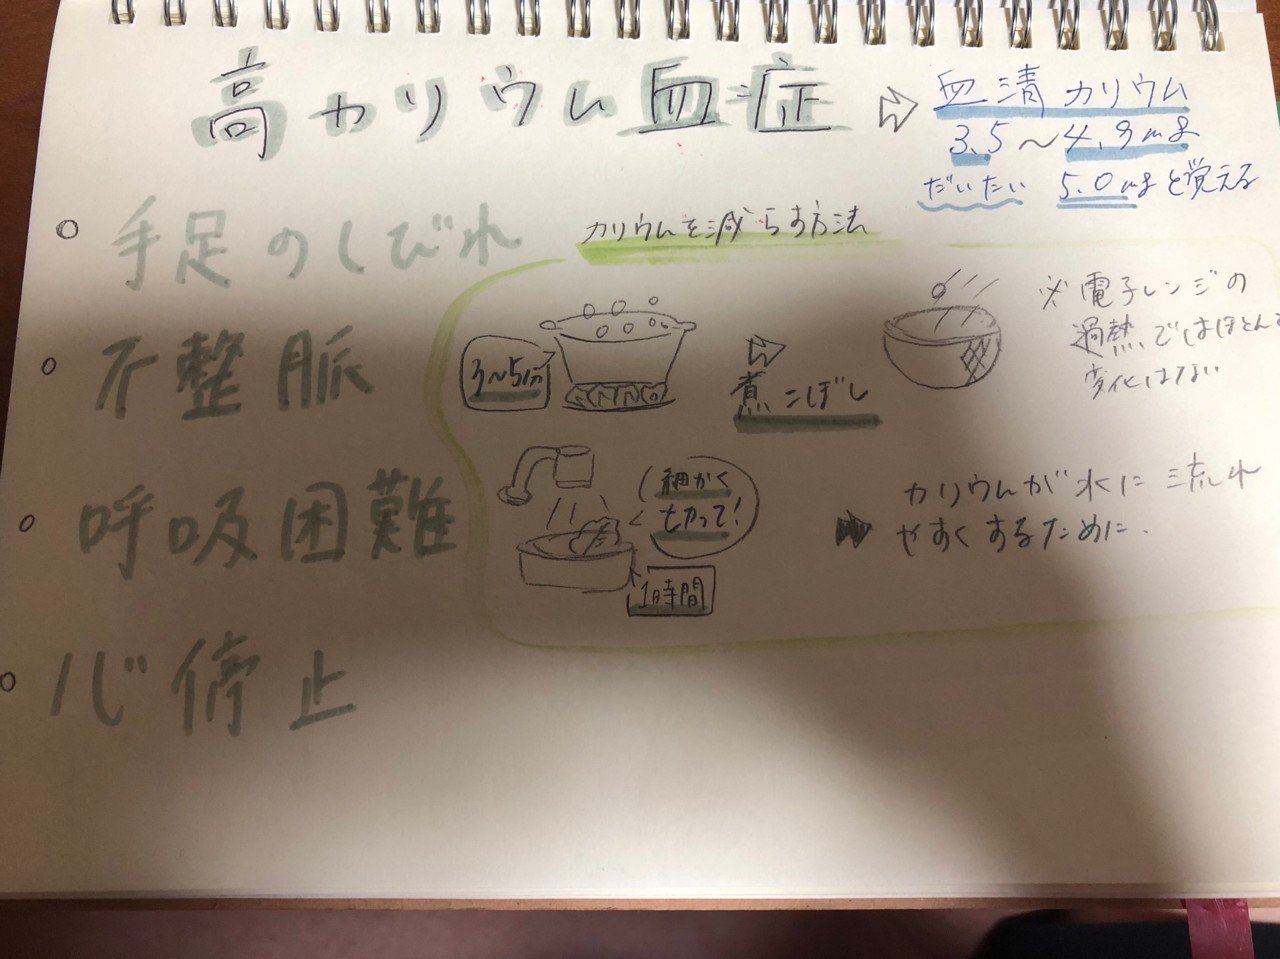 高カリウム血症 ⇨ 血清カリウム
3.5〜4.9mg
だいたい 5.0mgと覚える
○ 手足のしびれ
○ 不整脈
○ 呼吸困難
○ 心停止
カリウムを減らす方法
3〜5分
⇨
煮こぼし
※電子レンジの
過熱ではほとんど
変化はない
細かく
切って!
1時間
カリウムが水に流れ
やすくするために.